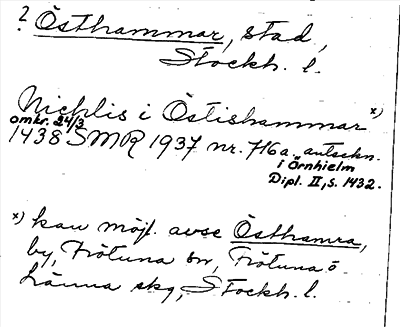 ? Östhammar, stad,
Stockh. l.
Nichlis i Östishammar x)
omkr. 24/3
1438 SMR 1937 nr. 716a, anteckn.
i Örnhielm
Dipl. II, s. 1432.
x) kan möjl. avse Östhamra,
by, Frötuna sn, Frötuna o.
Länna skg, Stockh. l.